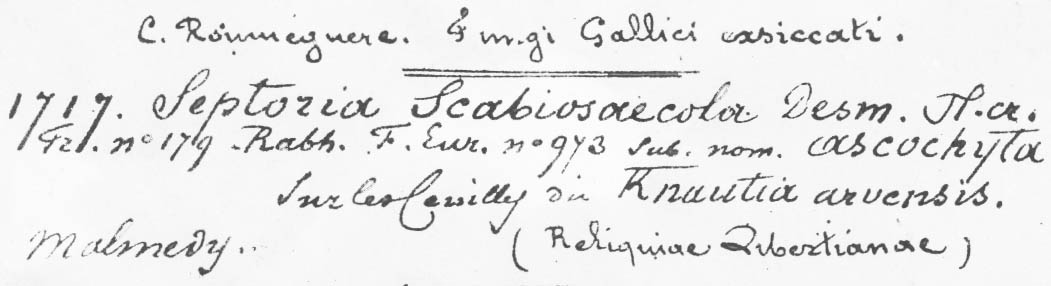 C. Roumeguere. Fungi Gallici exsiccati.
1717. Septoria Scabiosaecola Desm. Pl. cr.
Fr. no 179 Rabh. F. Eur. no 973 sub. nom. ascochyta
Sur les feuilles du Knautia arvensis.
Malmedy. (Reliquiae Libertianae)